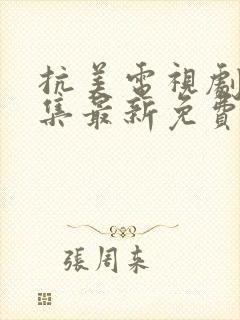 抗美電視劇
集最新免費
張周来